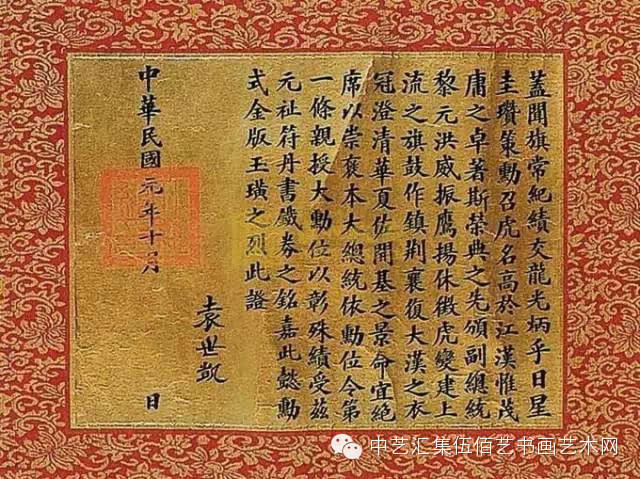 蓋聞旗常紀績交龍光炳乎日星
圭瓚策勳召虎名高於江漢惟茂
庸之卓著斯榮典之先頒副總統
黎元洪威振鷹揚休徵虎變建上
流之旗鼓作鎮荆襄復大漢之衣
冠澄清華夏佐開基之景命宜絕
席以崇褒本大總統依勳位令第
一條親授大勳位以彰殊績受兹
元祉符丹書鐵券之銘嘉此懋勳
式金版玉璜之烈此證
袁世凱
中華民國元年十月 日
中艺汇集伍佰艺书画艺术网